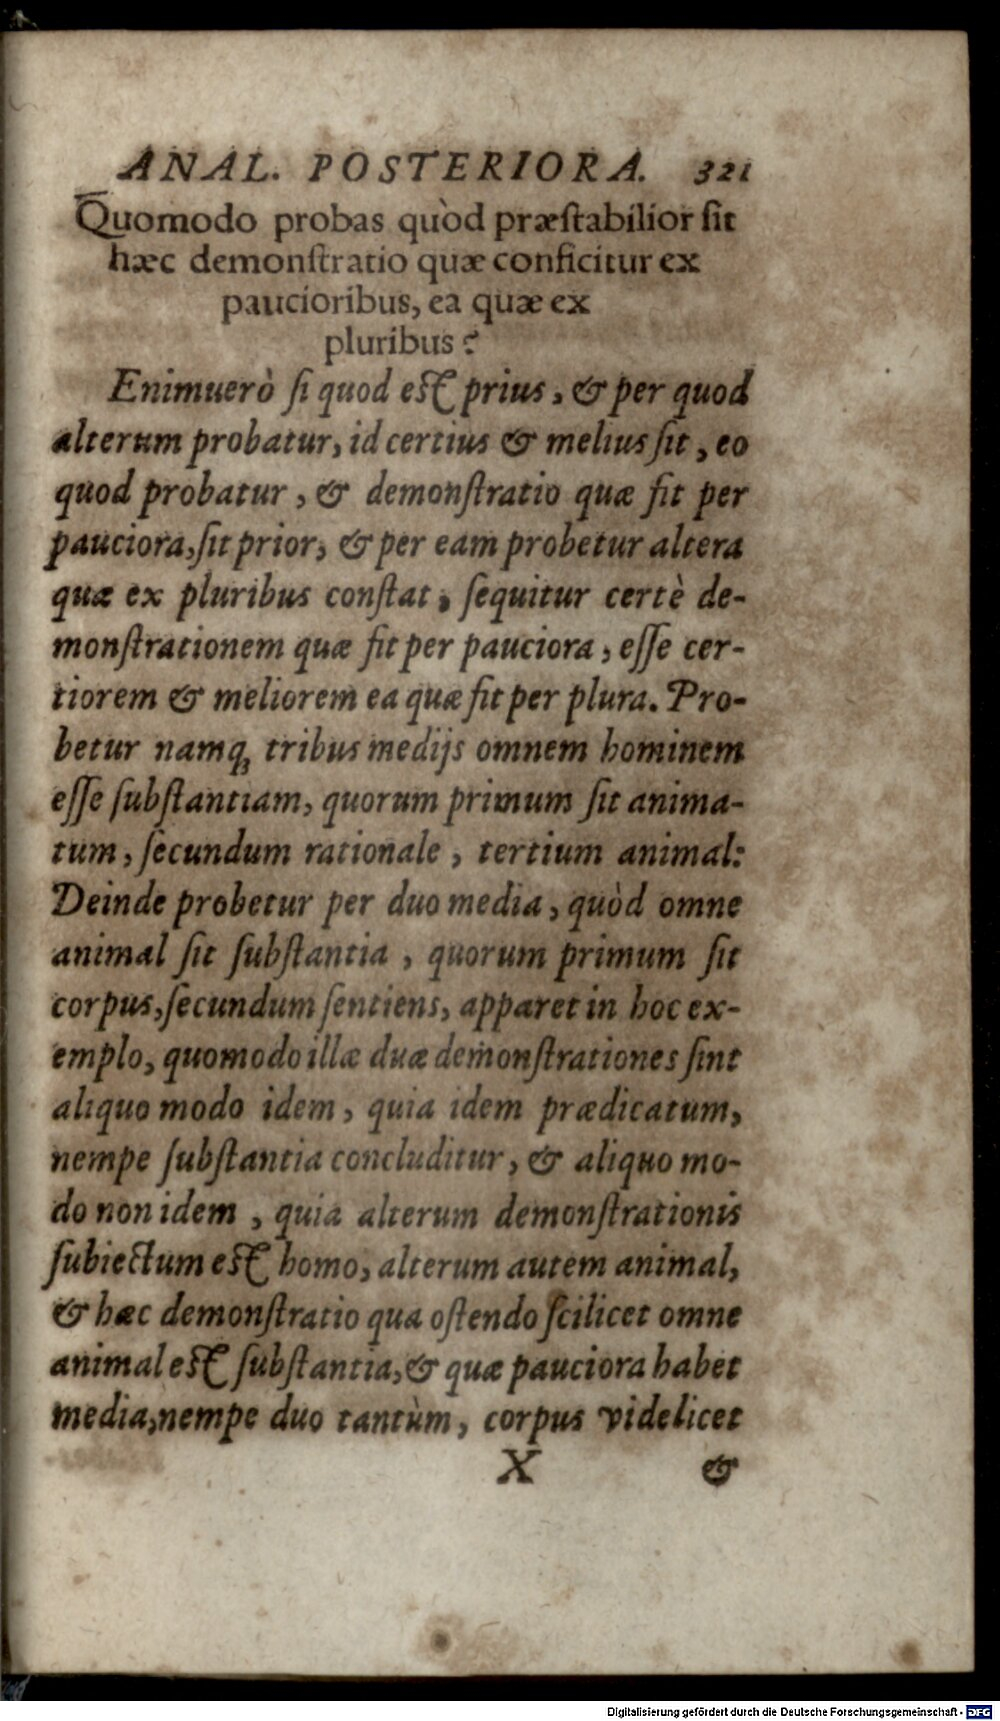 ANAL. POSTERIORA. 321
Quomodo probas quòd præstabilior sit
hæc demonstratio quæ conficitur ex
paucioribus, ea quæ ex
pluribus?
Enimuerò si quod est prius, & per quod
alterum probatur, id certius & melius sit, eo
quod probatur, & demonstratio quæ fit per
pauciora, sit prior, & per eam probetur altera
quæ ex pluribus constat, sequitur certè de-
monstrationem quæ fit per pauciora, esse cer-
tiorem & meliorem ea quæ fit per plura. Pro-
betur namq; tribus medijs omnem hominem
esse substantiam, quorum primum sit anima-
tum, secundum rationale, tertium animal:
Deinde probetur per duo media, quòd omne
animal sit substantia, quorum primum sit
corpus, secundum sentiens, apparet in hoc ex-
emplo, quomodo illæ duæ demonstrationes sint
aliquo modo idem, quia idem prædicatum,
nempe substantia concluditur, & aliquo mo-
do non idem, quia alterum demonstrationis
subiectum est homo, alterum autem animal,
& hæc demonstratio qua ostendo scilicet omne
animal est substantia, & quæ pauciora habet
media, nempe duo tantùm, corpus videlicet
X &
Digitalisierung gefördert durch die Deutsche Forschungsgemeinschaft - DFG